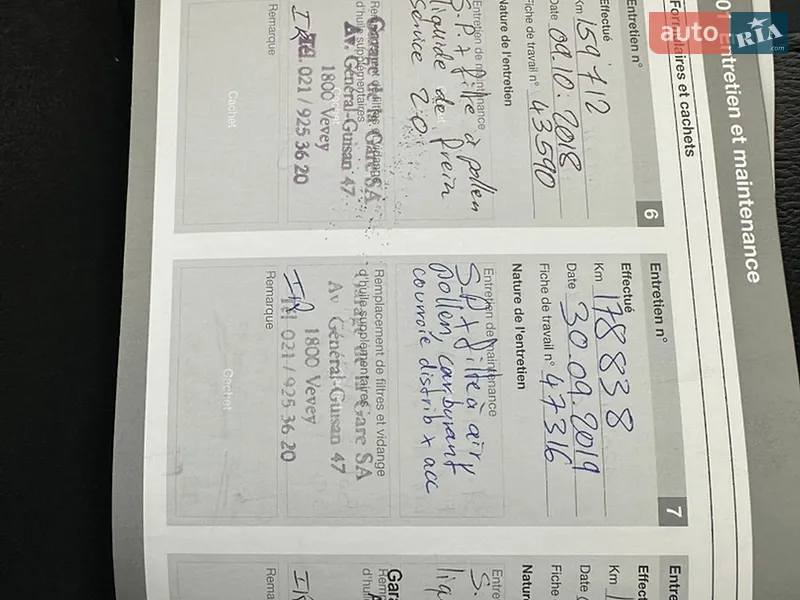 auto RIA.com
01 Entretien et maintenance
Formulaires et cachets
Entretien n° 6
Effectué
Km 159'712
Date 09.10.2018
Fiche de travail n° 43590
Nature de l'entretien
Entretien de maintenance
S.P. + filtre à pollen
liquide de frein
service 2.0
d'huile supplémentaires
Garage de la Gare SA
Av. Général-Guisan 47
1800 Vevey
Tél. 021 / 925 36 20
Remarque
Cachet
Entretien n° 7
Effectué
Km 178 838
Date 30.09.2019
Fiche de travail n° 47316
Nature de l'entretien
Entretien de maintenance
S.P. + filtre à air,
pollen, carburant
courroie distrib x acc
Remplacement de filtres et vidange
d'huile supplémentaires
Garage de la Gare SA
Av Général-Guisan 47
1800 Vevey
Tél 021 / 925 36 20
Remarque
Cachet
Entre
Effect
Km
Date
Fiche
Nature
Entre
S.
liq
Gara
Rem
d'hui
Rema